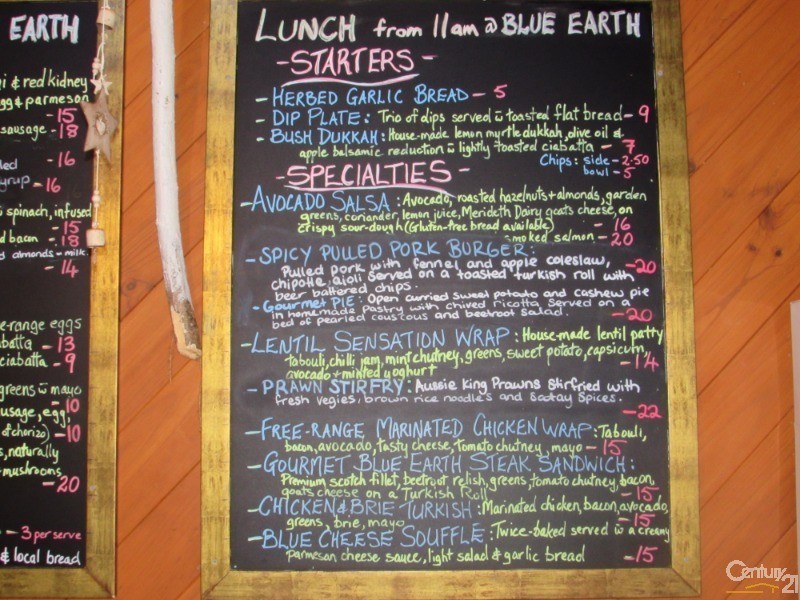 EARTH
i & red kidney
gg & parmesan
- 15
sausage - 18
- 16
yrup - 16
ū spinach, infused
- 15
d bacon - 18
d almonds + milk
- 14
e-range eggs
batta - 13
ciabatta - 9
greens ū mayo
- 10
usage, egg,
of chorizo) - 10
s, naturally
mushrooms
- 20
- 3 per serve
& local bread
LUNCH from 11am @ BLUE EARTH
- STARTERS -
- HERBED GARLIC BREAD - 5
- DIP PLATE: Trio of dips served ū toasted flat bread - 9
- BUSH DUKKAH: House-made lemon myrtle dukkah, olive oil &
apple balsamic reduction ū lightly toasted ciabatta - 7
Chips: side - 2.50
bowl - 5
- SPECIALTIES -
- AVOCADO SALSA: Avocado, roasted hazelnuts + almonds, garden
greens, coriander, lemon juice, Merideth Dairy goats cheese, on
crispy sour-dough (Gluten-free bread available) - 16
smoked salmon - 20
- SPICY PULLED PORK BURGER:
Pulled pork with fennel and apple coleslaw, - 20
chipotle aioli served on a toasted turkish roll with
beer battered chips.
- Gourmet PIE: Open curried sweet potato and cashew pie
in homemade Pastry with chived ricotta. Served on a
bed of pearled couscous and beetroot salad. - 20
- LENTIL SENSATION WRAP: House-made lentil patty
tabouli, chilli jam, mint chutney, greens, sweet potato, capsicum,
avocado + minted yoghurt - 14
- PRAWN STIRFRY: Aussie King Prawns Stirfried with
fresh vegies, brown rice noodles and Saatay Spices.
- 22
- FREE-RANGE MARINATED CHICKEN WRAP: Tabouli,
bacon, avocado, tasty cheese, tomato chutney, mayo - 15
- GOURMET BLUE EARTH STEAK SANDWICH:
Premium scotch fillet, beetroot relish, greens, tomato chutney, bacon,
goats cheese on a Turkish Roll - 15
- CHICKEN & BRIE TURKISH: Marinated chicken, bacon, avocado,
greens, brie, mayo - 15
- BLUE CHEESE SOUFFLE: Twice-baked served ū a creamy
parmesan cheese sauce, light salad & garlic bread - 15
Century 21